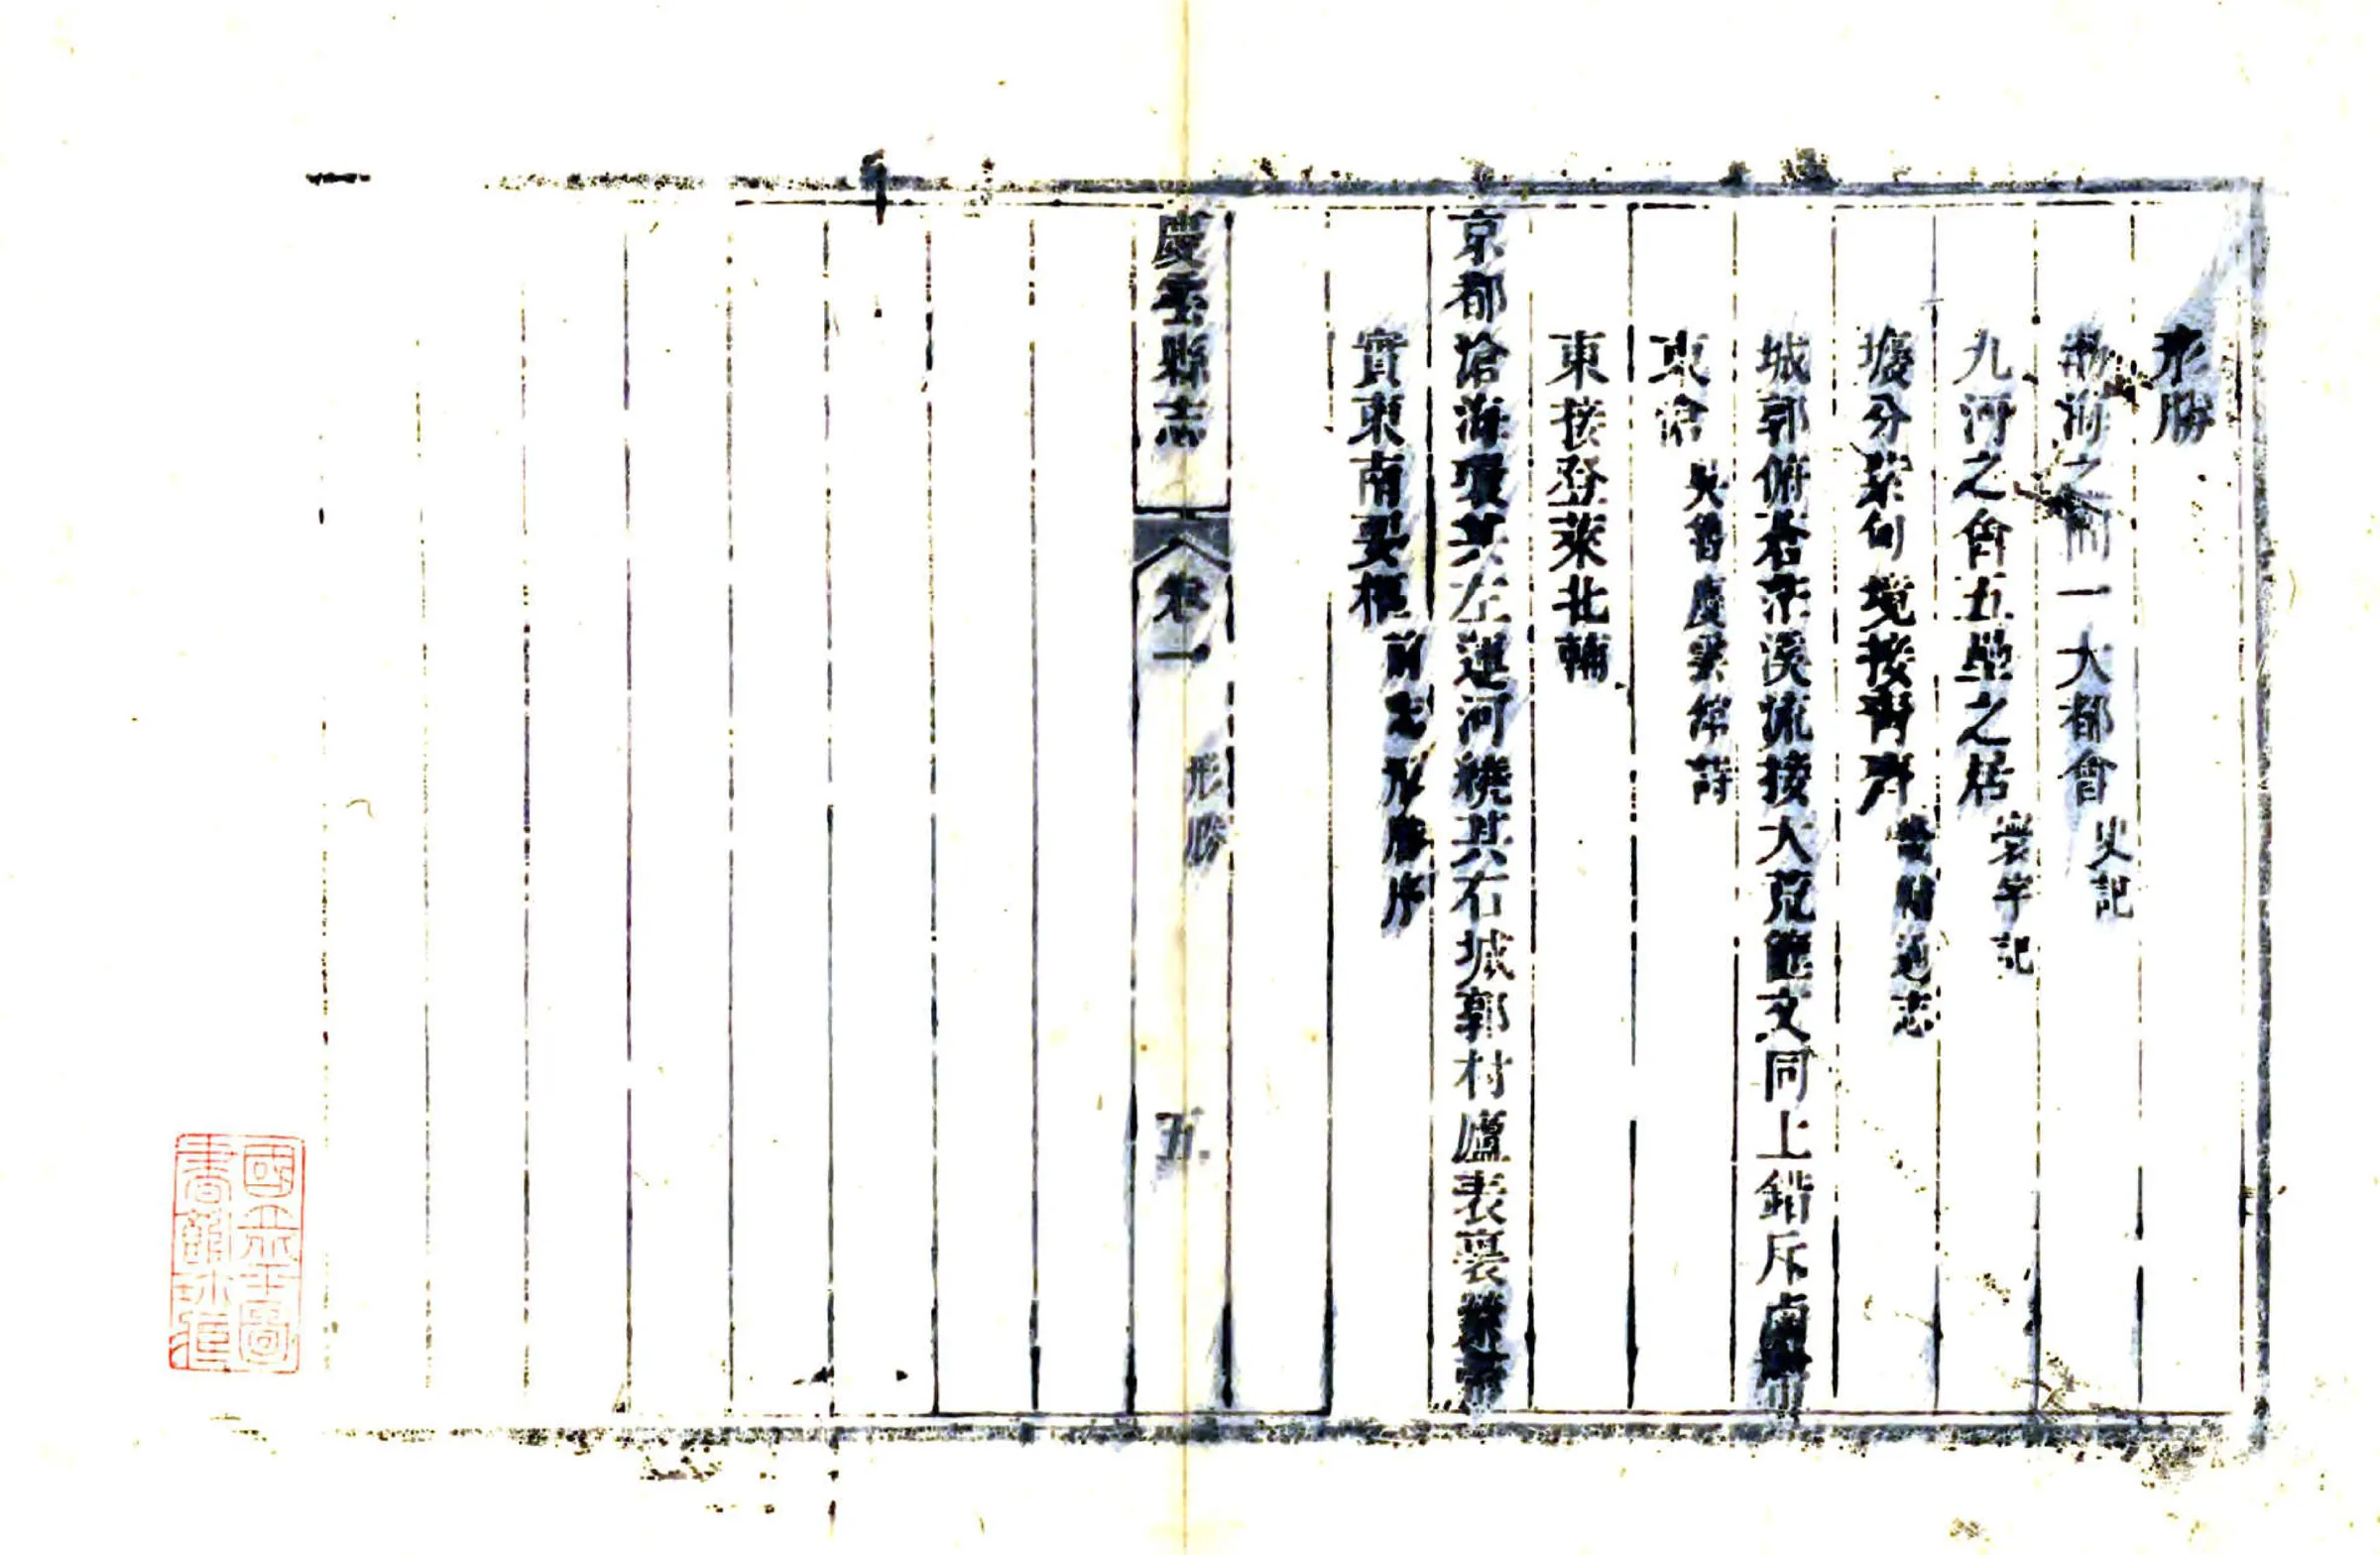 形勝
渤海之間一大都會史記
九河之會五壘之居寰宇記
壤分冀甸境接青齊畿輔通志
城郭俯蒼茫溪流接大荒籬交同上錯斥鹵
東滄吳曾慶雲館詩
東接登萊北輔
京都滄海環其左運河繞其右城郭村廬表裏縈帶
實東南要樞前志形勝序
慶雲縣志
卷一
形勝
五
國立北平圖
書館珍藏